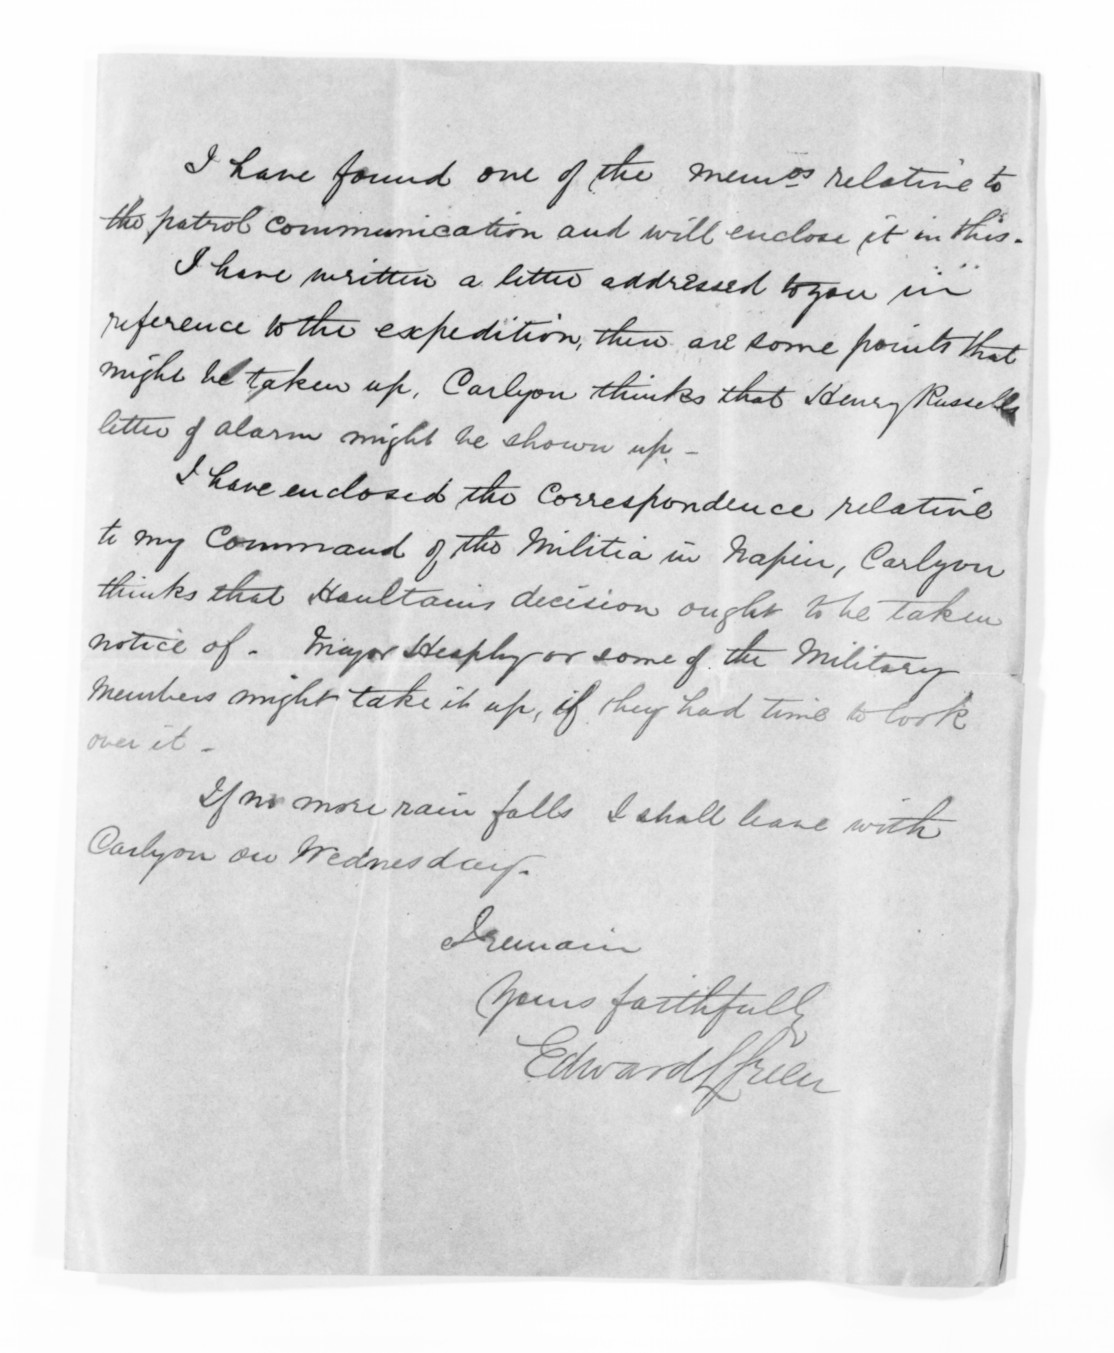 I have found one of the memos relative to
the patrol communication and will enclose it in this.
I have written a letter addressed to you in
reference to the expedition, there are some points that
might be taken up. Carlyon thinks that Henry Russells
letter of alarm might be shown up. -
I have enclosed the Correspondence relative
to my Command of the Militia in Napier, Carlyon
thinks that Haultains decision ought to be taken
notice of. Major Heaphy or some of the Military
Members might take it up, if they had time to look
over it -
If no more rain falls I shall leave with
Carlyon on Wednesday.
I remain
Yours faithfully
Edward L Green